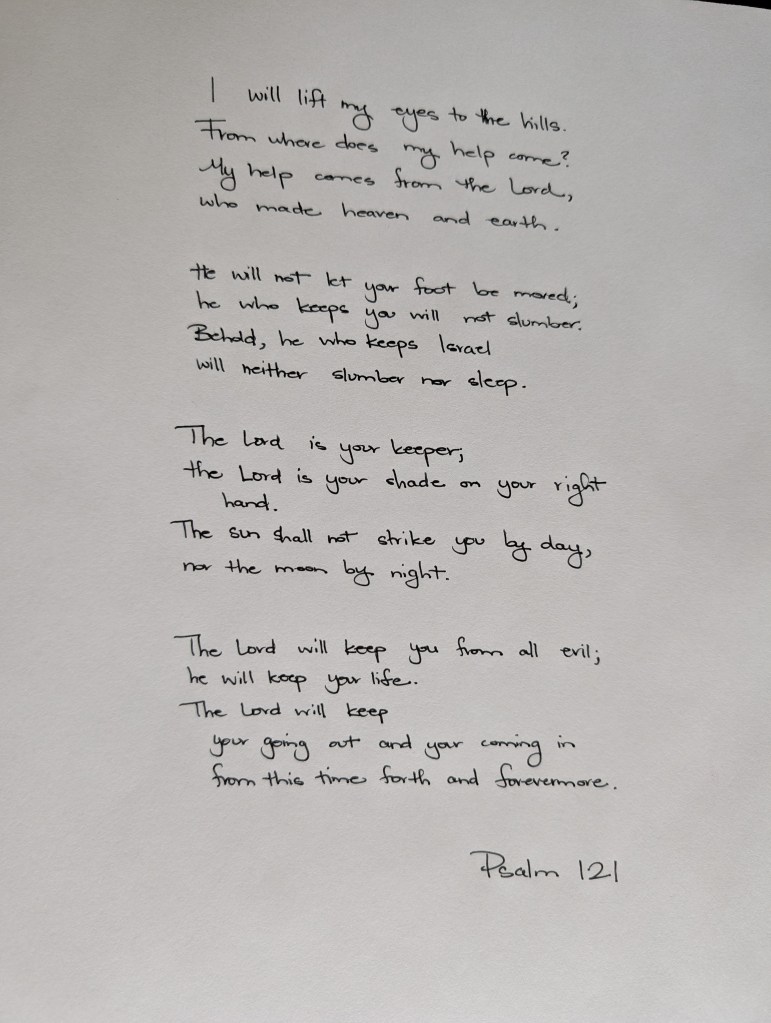 I will lift my eyes to the hills.
From where does my help come?
My help comes from the Lord,
who made heaven and earth.
He will not let your foot be moved;
he who keeps you will not slumber.
Behold, he who keeps Israel
will neither slumber nor sleep.
The Lord is your keeper;
the Lord is your shade on your right
hand.
The sun shall not strike you by day,
nor the moon by night.
The Lord will keep you from all evil;
he will keep your life.
The Lord will keep
your going out and your coming in
from this time forth and forevermore.
Psalm 121